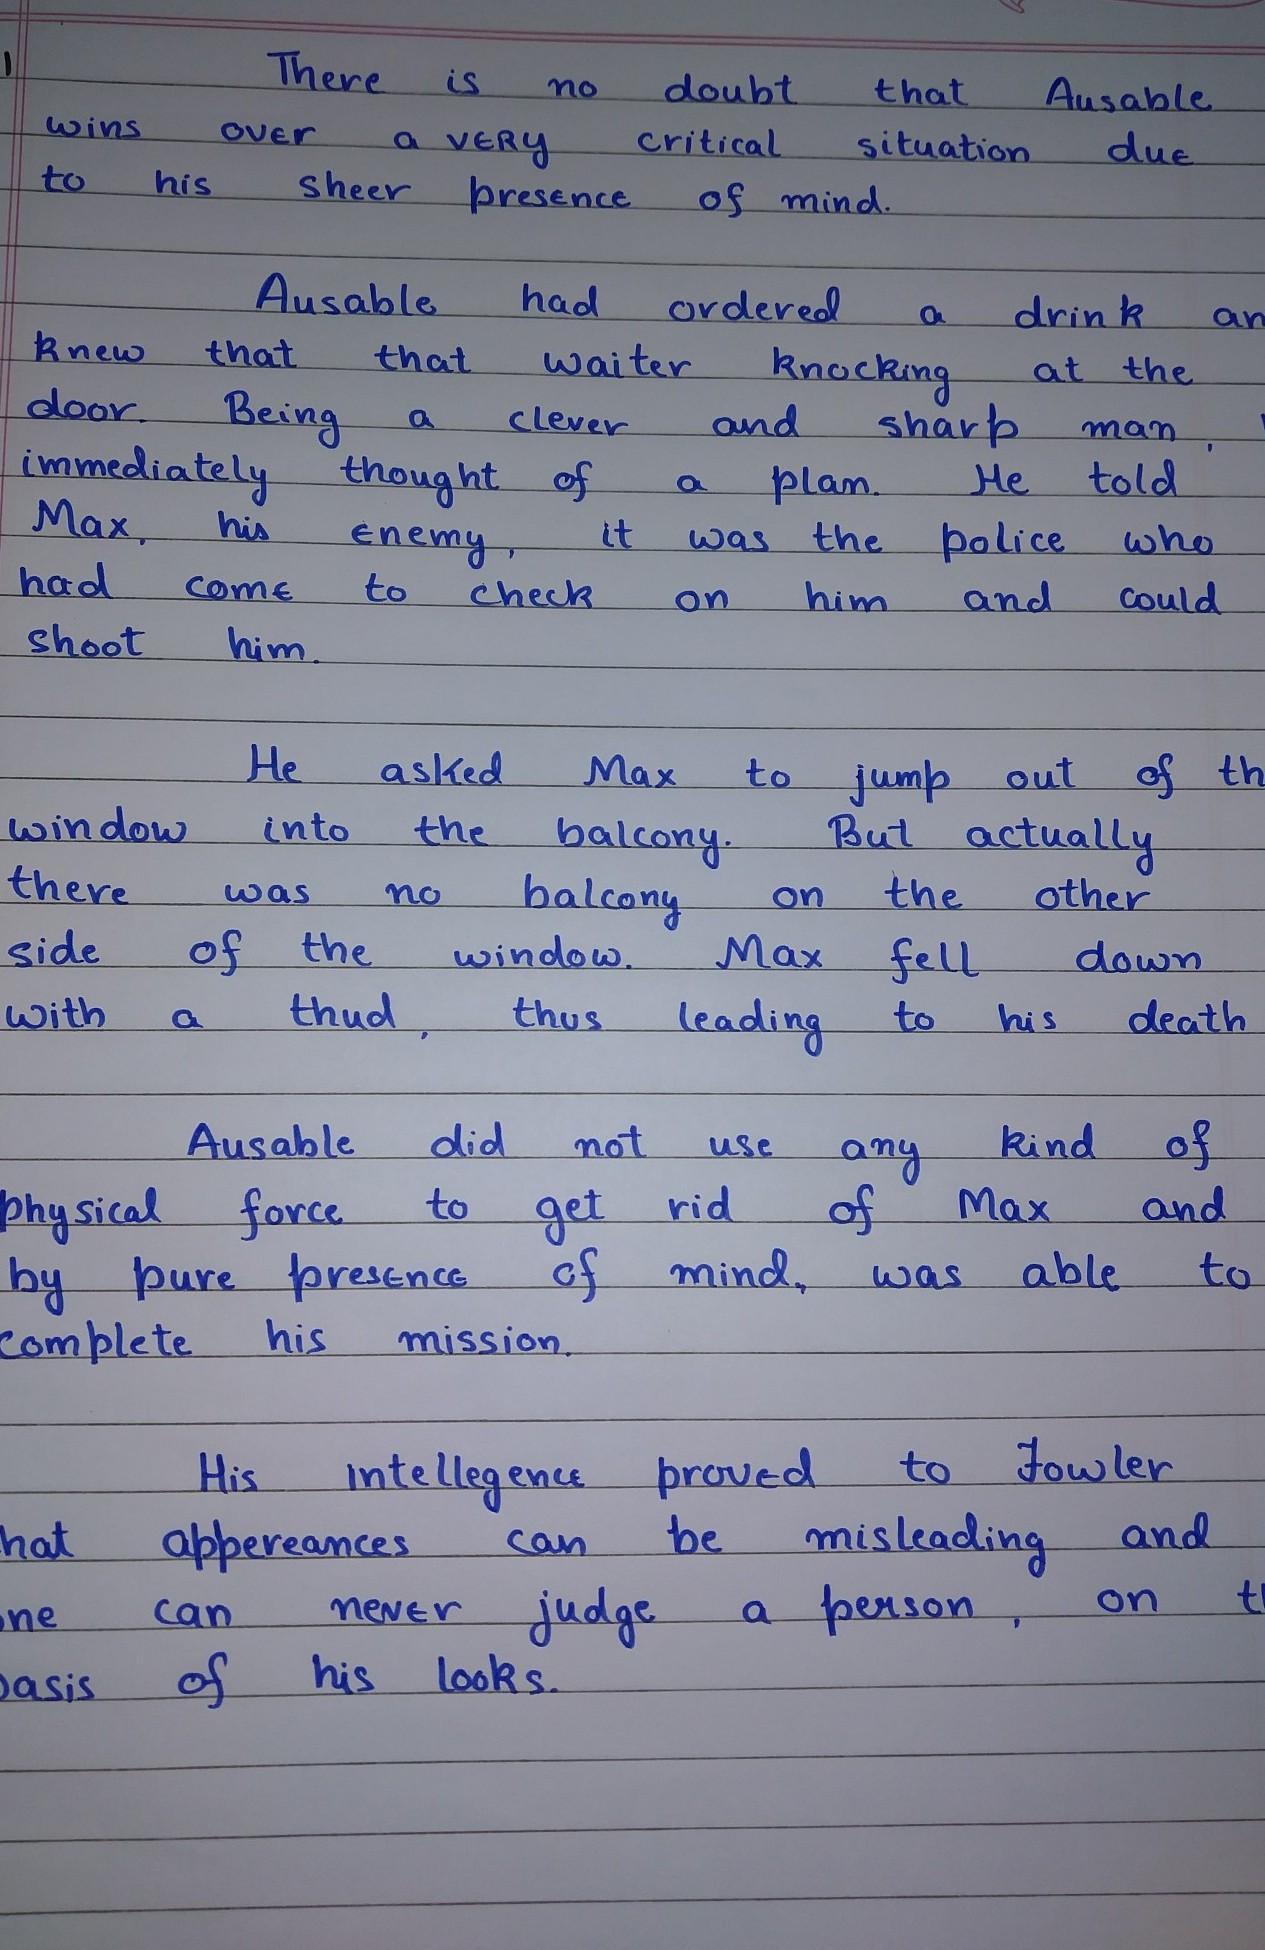 1 There is no doubt that Ausable
wins over a very critical situation due
to his sheer presence of mind.
Ausable had ordered a drink an
knew that that waiter knocking at the
door. Being a clever and sharp man,
immediately thought of a plan. He told
Max, his enemy, it was the police who
had come to check on him and could
shoot him.
He asked Max to jump out of th
window into the balcony. But actually
there was no balcony on the other
side of the window. Max fell down
with a thud, thus leading to his death
Ausable did not use any kind of
physical force to get rid of Max and
by pure presence of mind, was able to
complete his mission.
His intellegence proved to Fowler
hat appereances can be misleading and
ne can never judge a person, on th
basis of his looks.